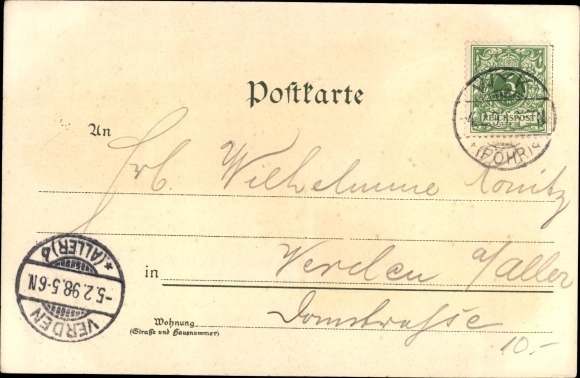 Postkarte
REICHSPOST
WYK
(FÖHR)
An
Frl. Wilhelmine Konitz
VERDEN
-5.2.98.5-6N.
*(ALLER)b
in
Verden a/Aller
Wohnung
(Straße und Hausnummer)
Domstrasse
10.-